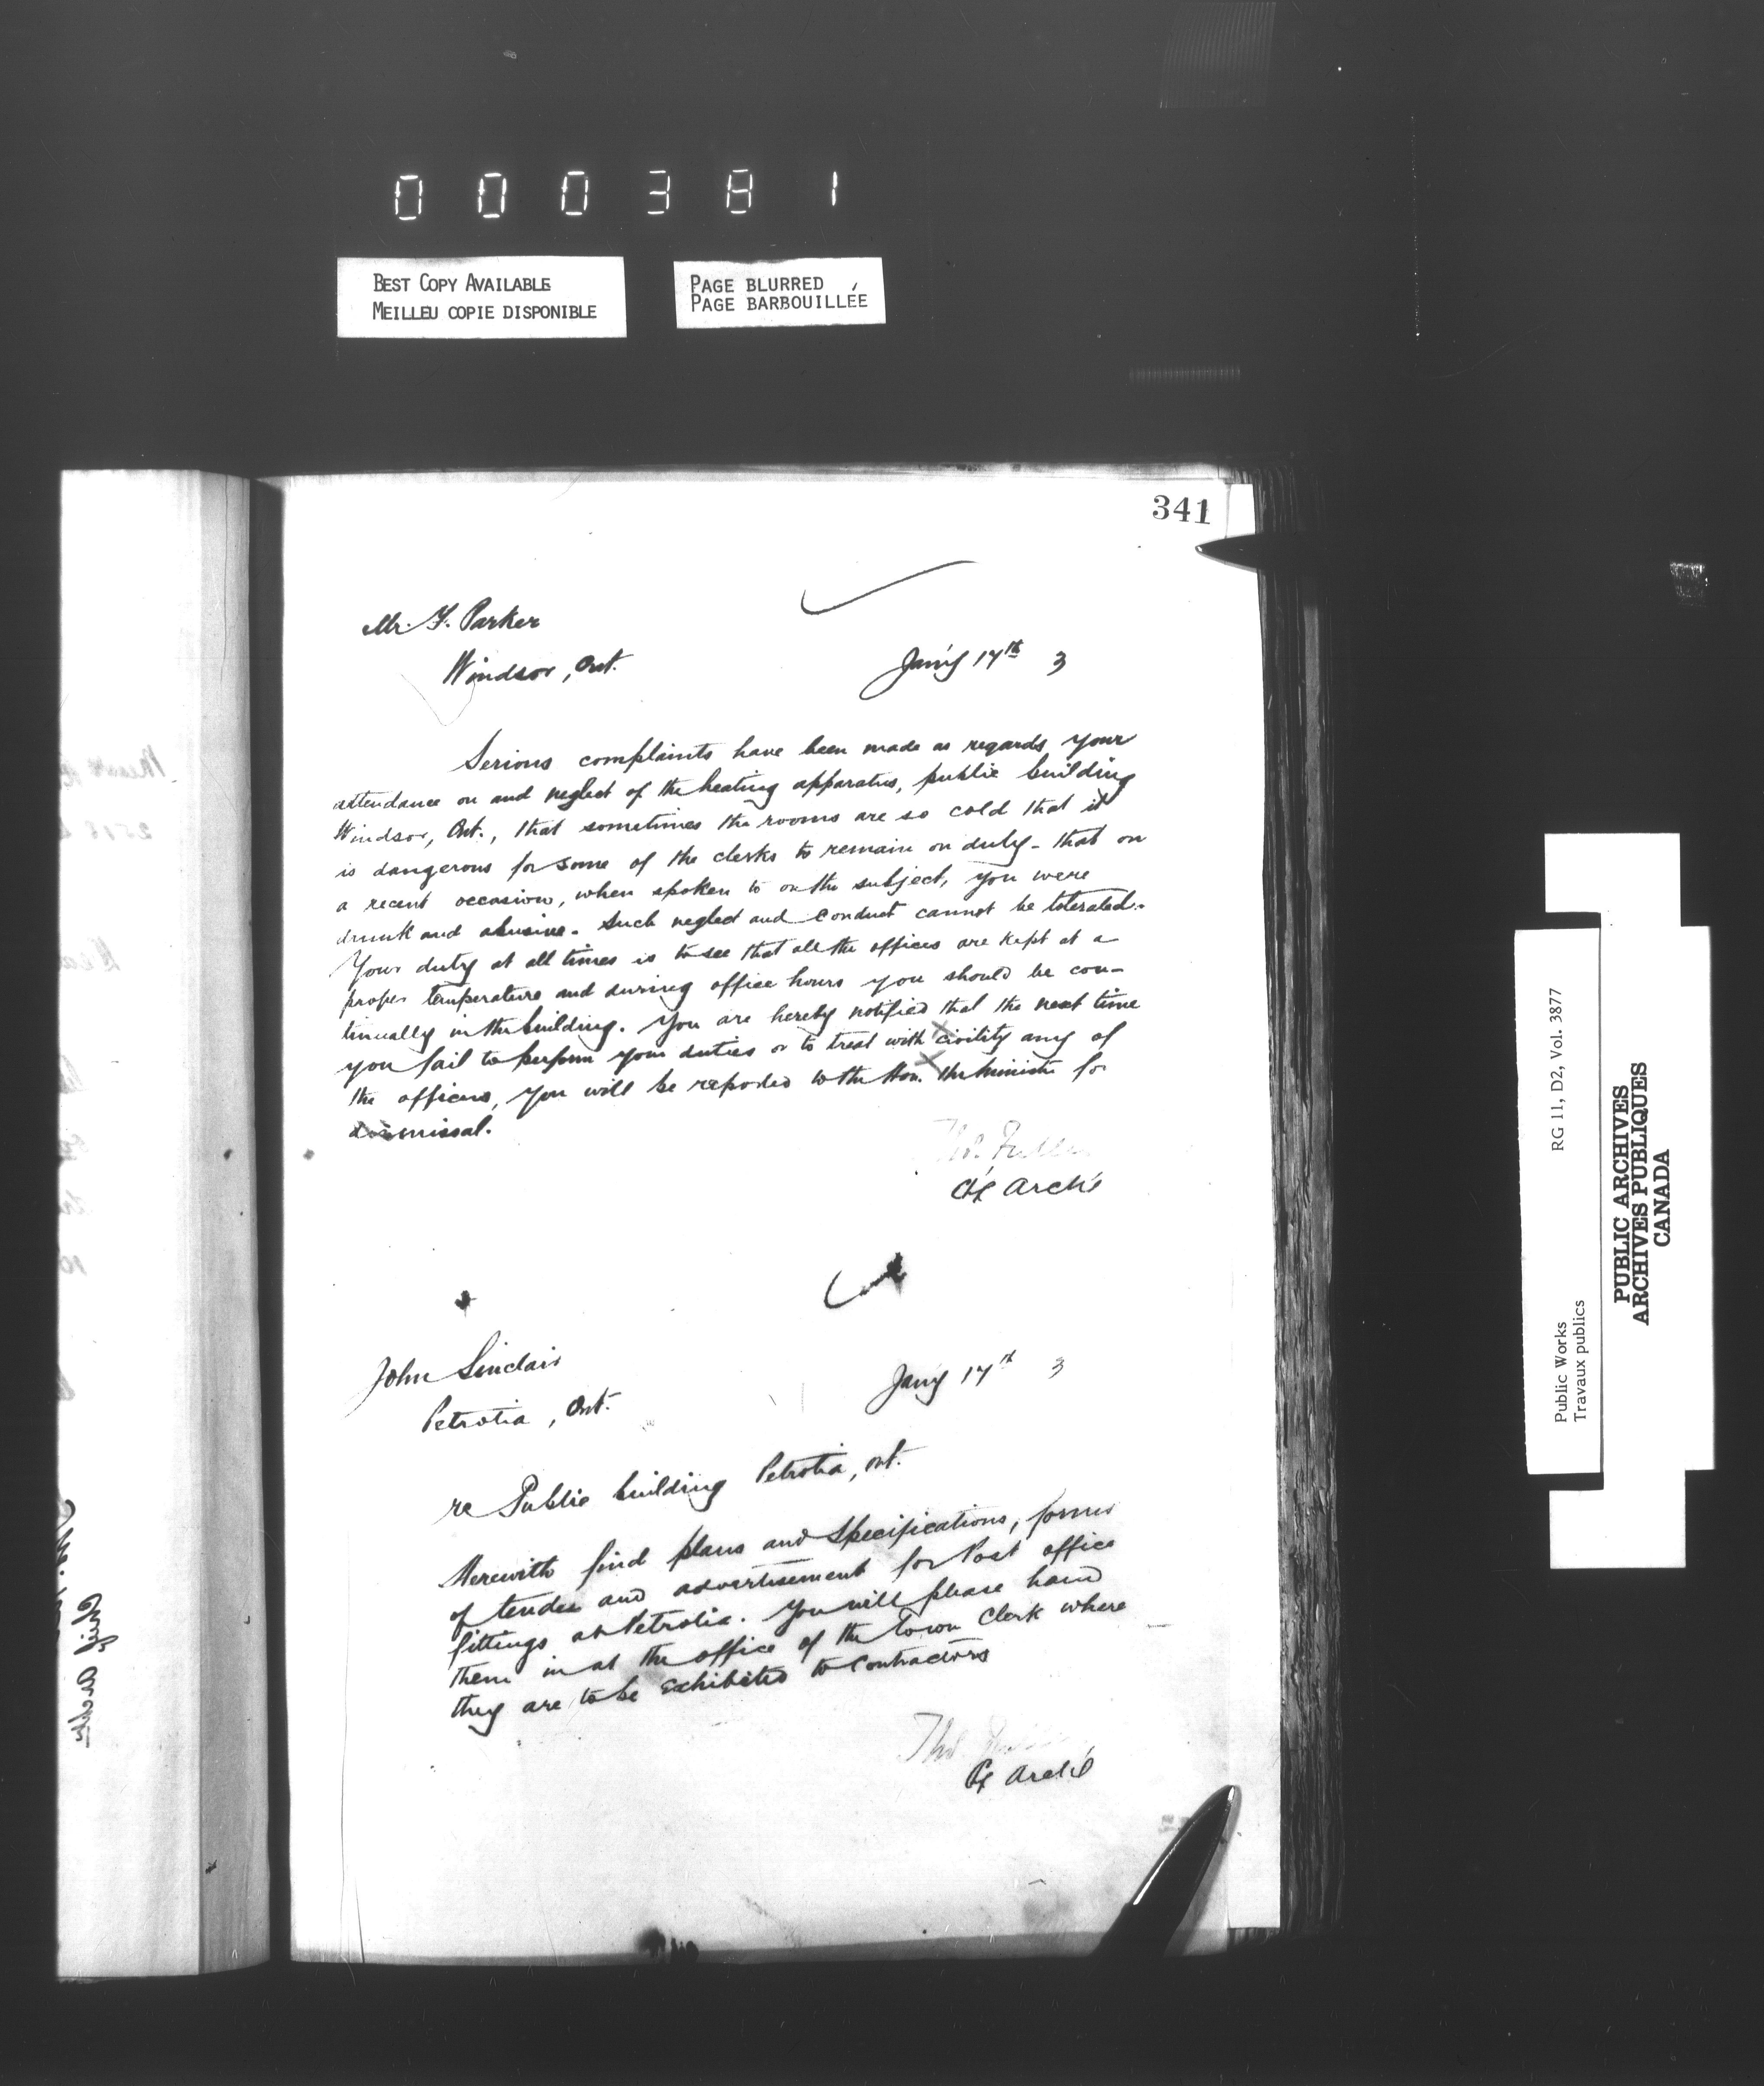 000381
BEST COPY AVAILABLE
MEILLEU COPIE DISPONIBLE
PAGE BLURRED
PAGE BARBOUILLÉE
341
Mr. F. Parker
Windsor, Ont.
Jan'y 17th 3
Serious complaints have been made as regards your
attendance on and neglect of the heating apparatus, public building
Windsor, Ont., that sometimes the rooms are so cold that it
is dangerous for some of the clerks to remain on duty - that on
a recent occasion, when spoken to on the subject, you were
drunk and abusive. Such neglect and conduct cannot be tolerated.
Your duty at all times is to see that all the offices are kept at a
proper temperature and during office hours you should be con-
tinually in the building. You are hereby notified that the next time
you fail to perform your duties or to treat with civility any of
the officers, you will be reported to the Hon. the Minister for
dismissal.
Thos. Fuller
Cf Archt
John Sinclair
Petrolia, Ont.
Jan'y 17th 3
re Public building Petrolia, Ont.
Herewith find plans and specifications, forms
of tender and advertisement for Post office
fittings at Petrolia. You will please hand
them in at the office of the Town Clerk where
they are to be exhibited to Contractors
Thos
Cf Archt
Public Works
Travaux publics
RG 11, D2, Vol. 3877
PUBLIC ARCHIVES
ARCHIVES PUBLIQUES
CANADA